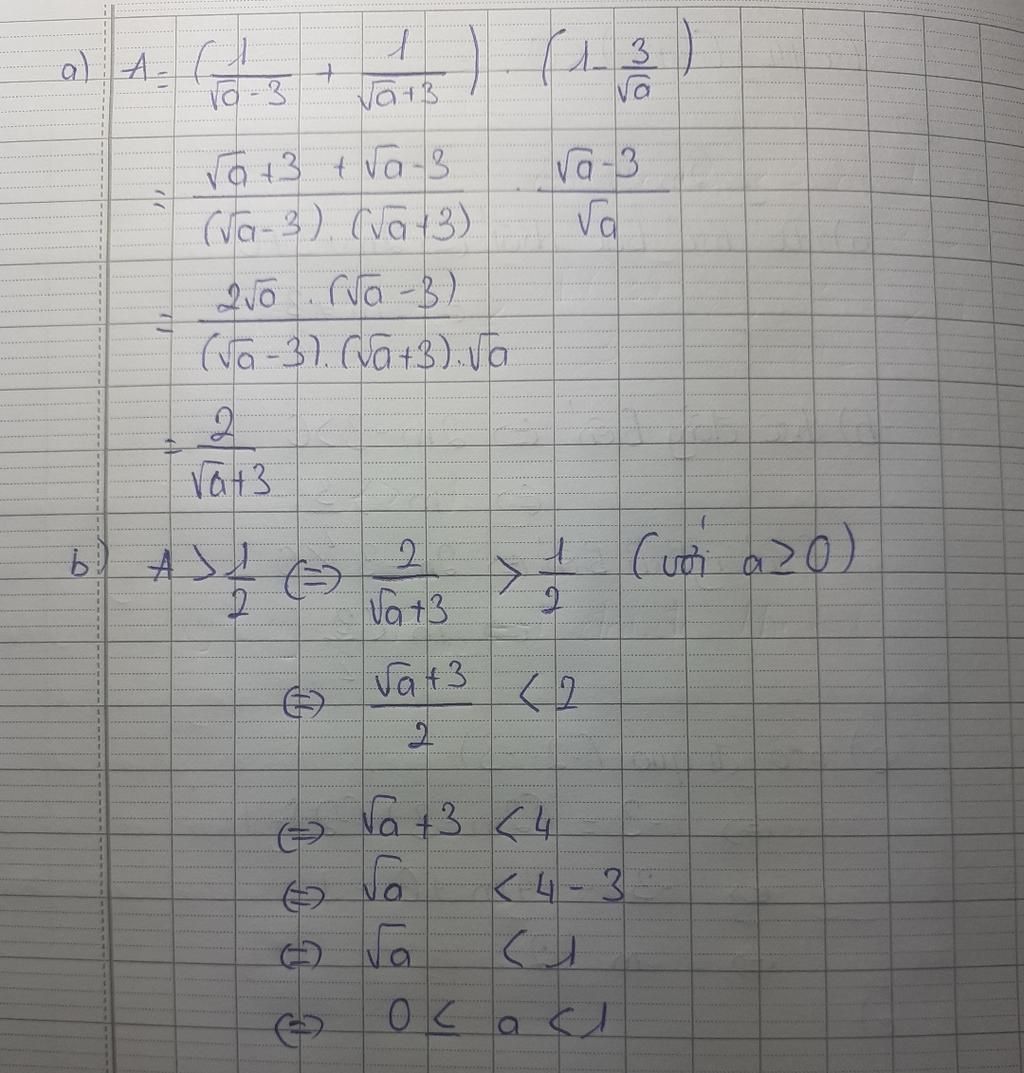 a) A = (1/(√a-3) + 1/(√a+3)) . (1 - 3/√a)
= (√a+3 + √a-3)/((√a-3).(√a+3)) . (√a-3)/√a
= (2√a . (√a-3))/((√a-3).(√a+3).√a)
= 2/(√a+3)
b) A > 1/2 ⇔ 2/(√a+3) > 1/2 (với a ≥ 0)
⇔ (√a+3)/2 < 2
⇔ √a+3 < 4
⇔ √a < 4-3
⇔ √a < 1
⇔ 0 ≤ a < 1